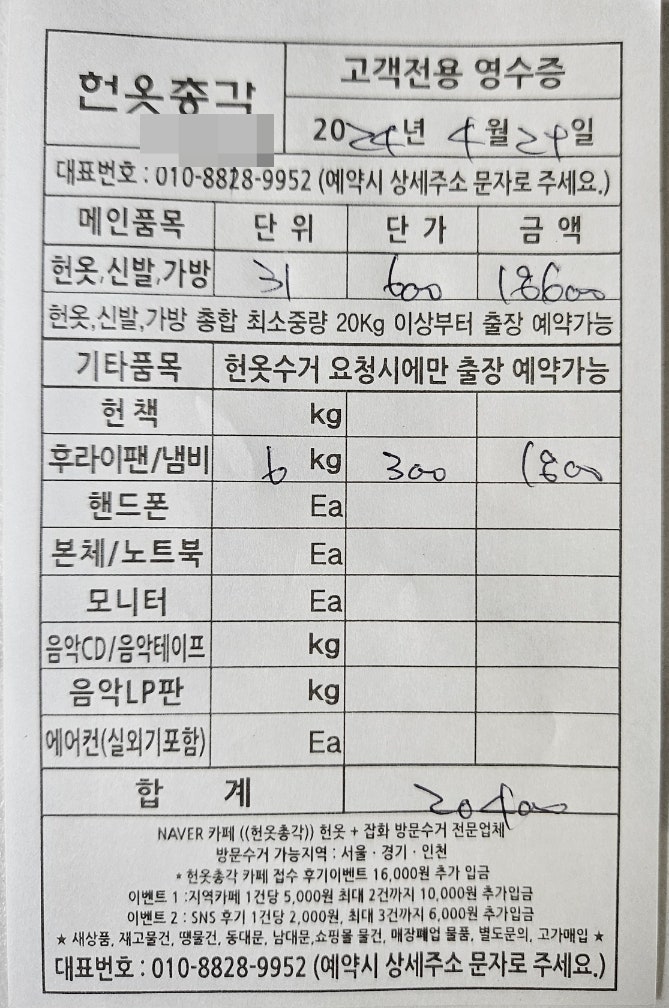 헌옷총각
고객전용 영수증
2024년 4월 24일
대표번호 : 010-8828-9952 (예약시 상세주소 문자로 주세요.)
메인품목 단 위 단 가 금 액
헌옷,신발,가방 31 600 18600
헌옷,신발,가방 총합 최소중량 20Kg 이상부터 출장 예약가능
기타품목 헌옷수거 요청시에만 출장 예약가능
헌 책 kg
후라이팬/냄비 6 kg 300 1800
핸드폰 Ea
본체/노트북 Ea
모니터 Ea
음악CD/음악테이프 kg
음악LP판 kg
에어컨(실외기포함) Ea
합 계 20400
NAVER 카페 ((헌옷총각)) 헌옷 + 잡화 방문수거 전문업체
방문수거 가능지역 : 서울 · 경기 · 인천
* 헌옷총각 카페 접수 후기이벤트 16,000원 추가 입금
이벤트 1 :지역카페 1건당 5,000원 최대 2건까지 10,000원 추가입금
이벤트 2 : SNS 후기 1건당 2,000원, 최대 3건까지 6,000원 추가입금
★ 새상품, 재고물건, 땡물건, 동대문, 남대문,쇼핑몰 물건, 매장폐업 물품, 별도문의, 고가매입 ★
대표번호 : 010-8828-9952 (예약시 상세주소 문자로 주세요.)